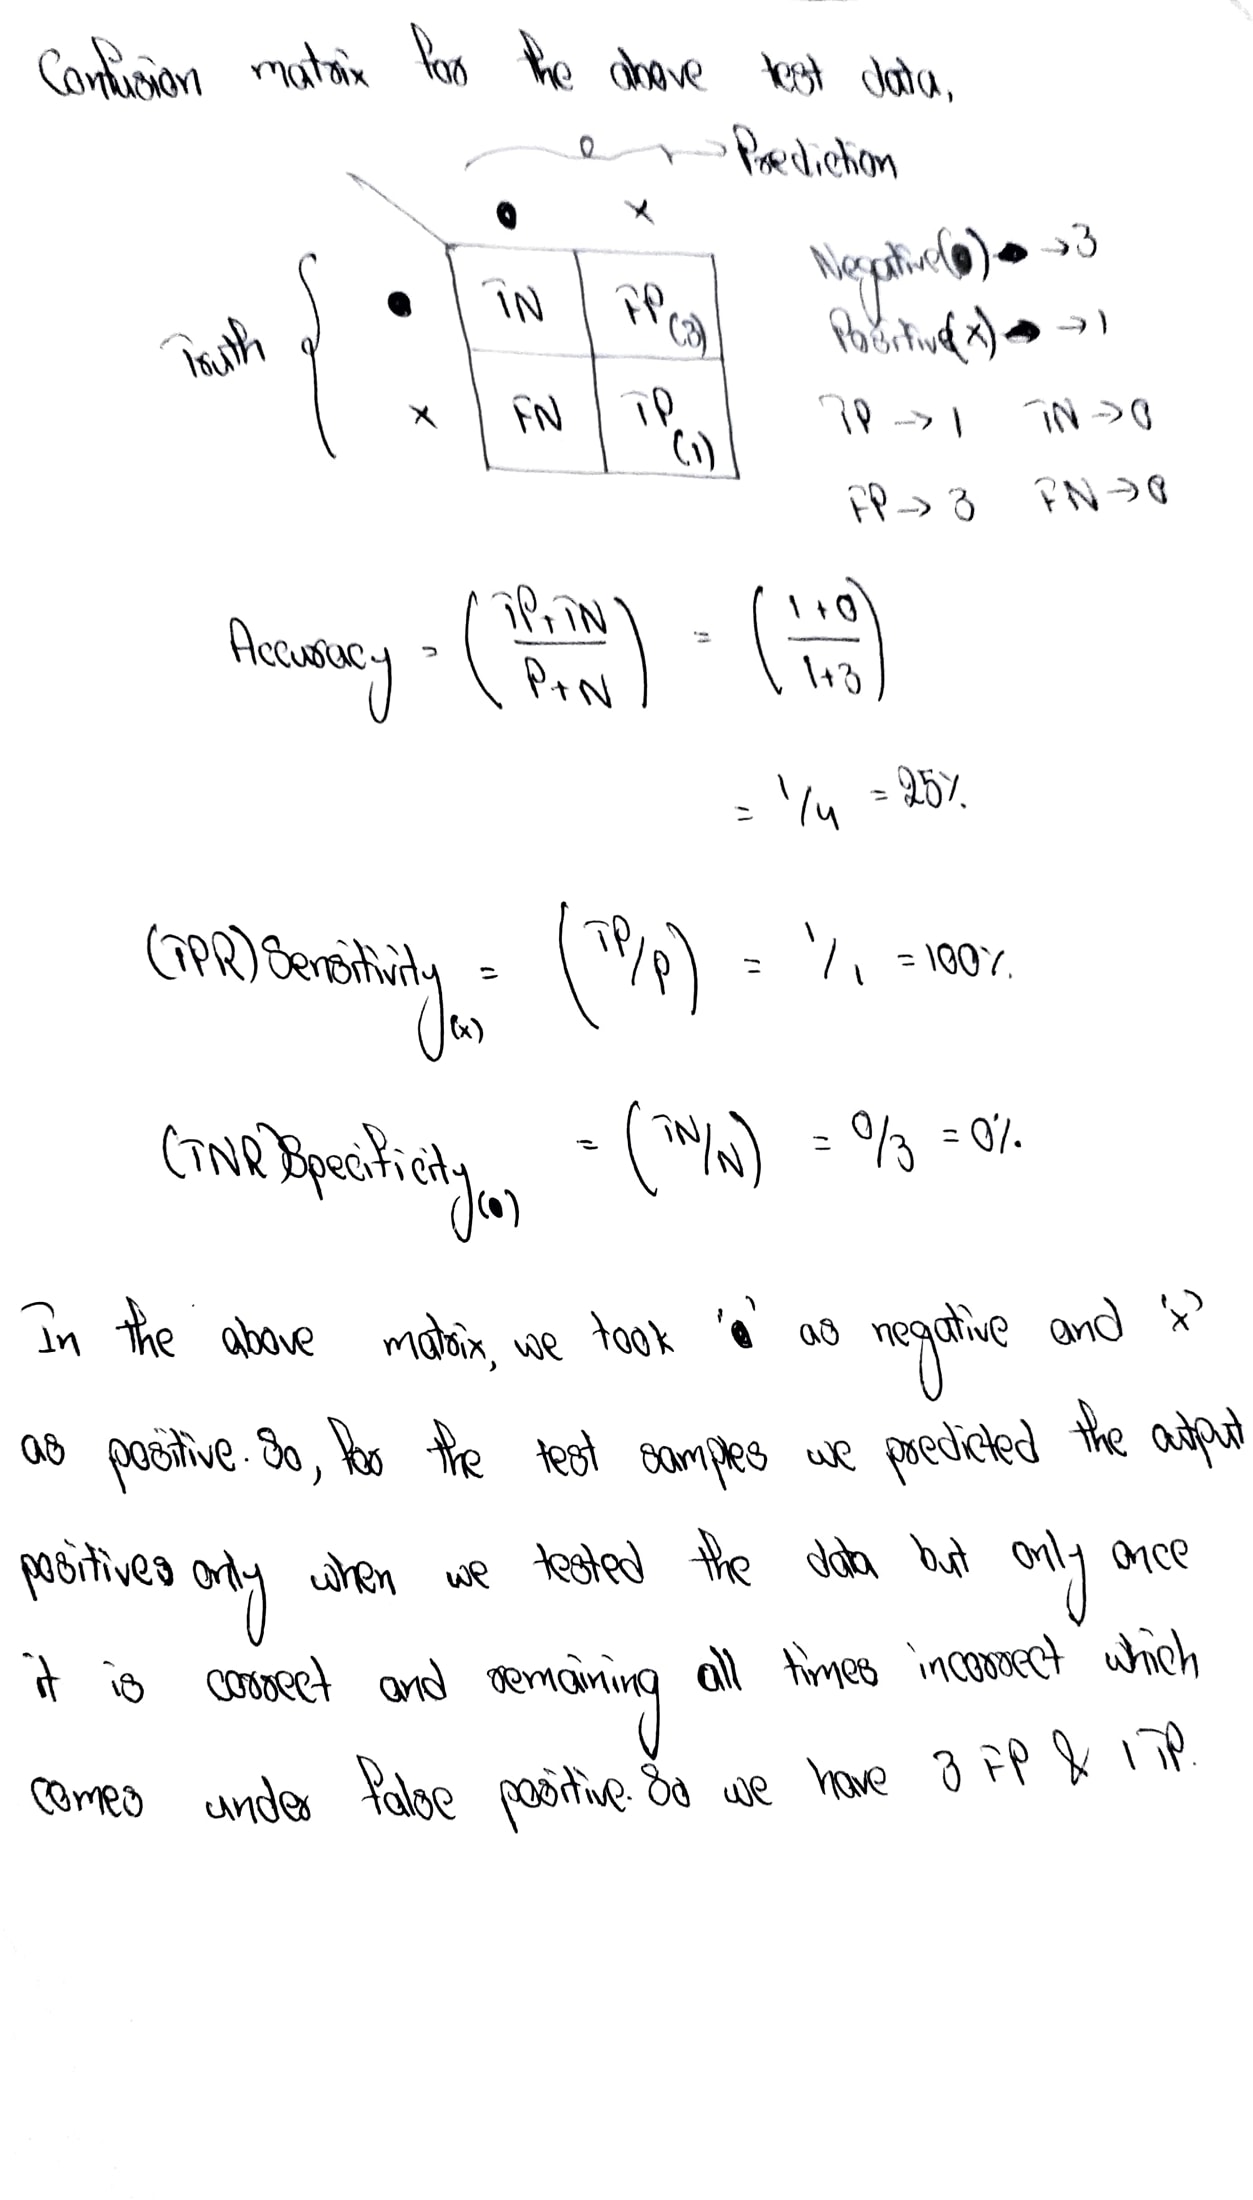 Confusion matrix for the above test data,
Prediction
● x
Truth
● TN FP (3)
x FN TP (1)
Negative(●) → 3
Positive(x) → 1
TP → 1 TN → 0
FP → 3 FN → 0
Accuracy = (TP+TN / P+N) = (1+0 / 1+3)
= 1/4 = 25%
(TPR) Sensitivity (x) = (TP/P) = 1/1 = 100%
(TNR) Specificity (●) = (TN/N) = 0/3 = 0%
In the above matrix, we took '●' as negative and 'x'
as positive. So, for the test samples we predicted the output
positives only when we tested the data but only once
it is correct and remaining all times incorrect which
comes under false positive. So we have 3 FP & 1 TP.